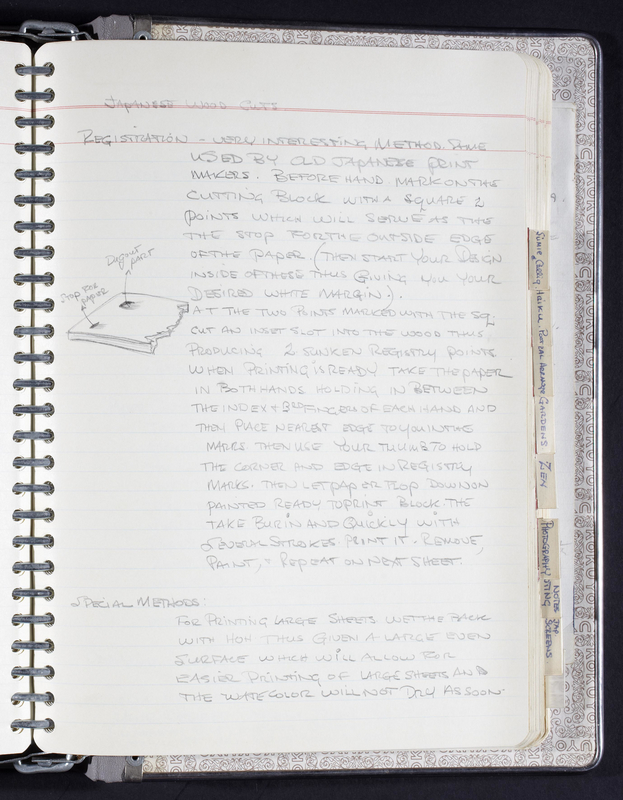 JAPANESE WOOD CUTS
REGISTRATION - VERY INTERESTING METHOD. SAME
USED BY OLD JAPANESE PRINT
MAKERS. BEFOREHAND. MARK ON THE
CUTTING BLOCK WITH A SQUARE 2
POINTS WHICH WILL SERVE AS THE
THE STOP FOR THE OUTSIDE EDGE
OF THE PAPER. (THEN START YOUR DESIGN
INSIDE OF THESE THUS GIVING YOU YOUR
DESIRED WHITE MARGIN.).
AT THE TWO POINTS MARKED WITH THE SQ.
CUT AN INSET SLOT INTO THE WOOD THUS
PRODUCING 2 SUNKEN REGISTRY POINTS
WHEN PRINTING IS READY TAKE THE PAPER
IN BOTH HANDS HOLDING IN BETWEEN
THE INDEX + 3RD FINGERS OF EACH HAND AND
THEN PLACE NEAREST EDGE TO YOU IN THE
MARKS. THEN USE YOUR THUMB TO HOLD
THE CORNER AND EDGE IN REGISTRY
MARKS. THEN LET PAPER FLOP DOWN ON
PAINTED READY TO PRINT BLOCK. THE
TAKE BURIN AND QUICKLY WITH
SEVERAL STROKES PRINT IT. REMOVE,
PAINT, & REPEAT ON NEXT SHEET.
Dug out
PART
Stop for
paper
SPECIAL METHODS:
FOR PRINTING LARGE SHEETS WET THE BACK
WITH HOH THUS GIVEN A LARGE EVEN
SURFACE WHICH WILL ALLOW FOR
EASIER PRINTING OF LARGE SHEETS AND
THE WATECOLOR WILL NOT DRY AS SOON.
GARDENS
ZEN
PHOTOGRAPHY
NOTES JAP
SCREENS